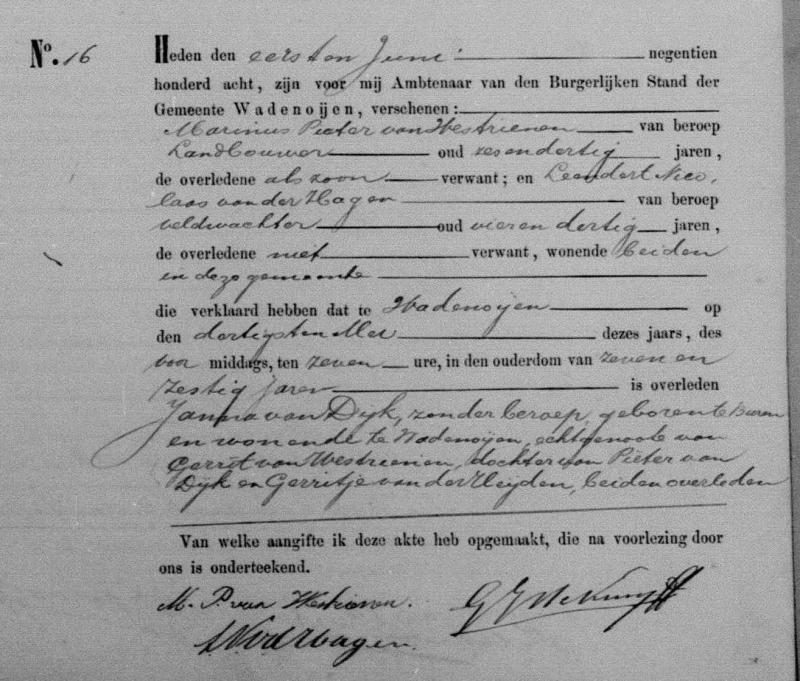 No. 16 Heden den eersten Juni negentien
honderd acht, zijn voor mij Ambtenaar van den Burgerlijken Stand der
Gemeente Wadenoijen, verschenen:
Marinus Pieter van Westrienen van beroep
Landbouwer oud zesendertig jaren,
de overledene als zoon verwant; en Leendert Nico,
laas van der Hagen van beroep
veldwachter oud vierendertig jaren,
de overledene niet verwant, wonende beiden
in deze gemeente
die verklaard hebben dat te Wadenoijen op
den dertigsten Mei dezes jaars, des
voor middags, ten zeven ure, in den ouderdom van zeven en
zestig jaren is overleden
Janna van Dijk, zonder beroep, geboren te Buren
en wonende te Wadenoijen, echtgenoote van
Gerrit van Westrienen, dochter van Pieter van
Dijk en Gerritje van der Heijden, beiden overleden
Van welke aangifte ik deze akte heb opgemaakt, die na voorlezing door
ons is onderteekend.
M. P. van Westrienen.
LNvdHagen